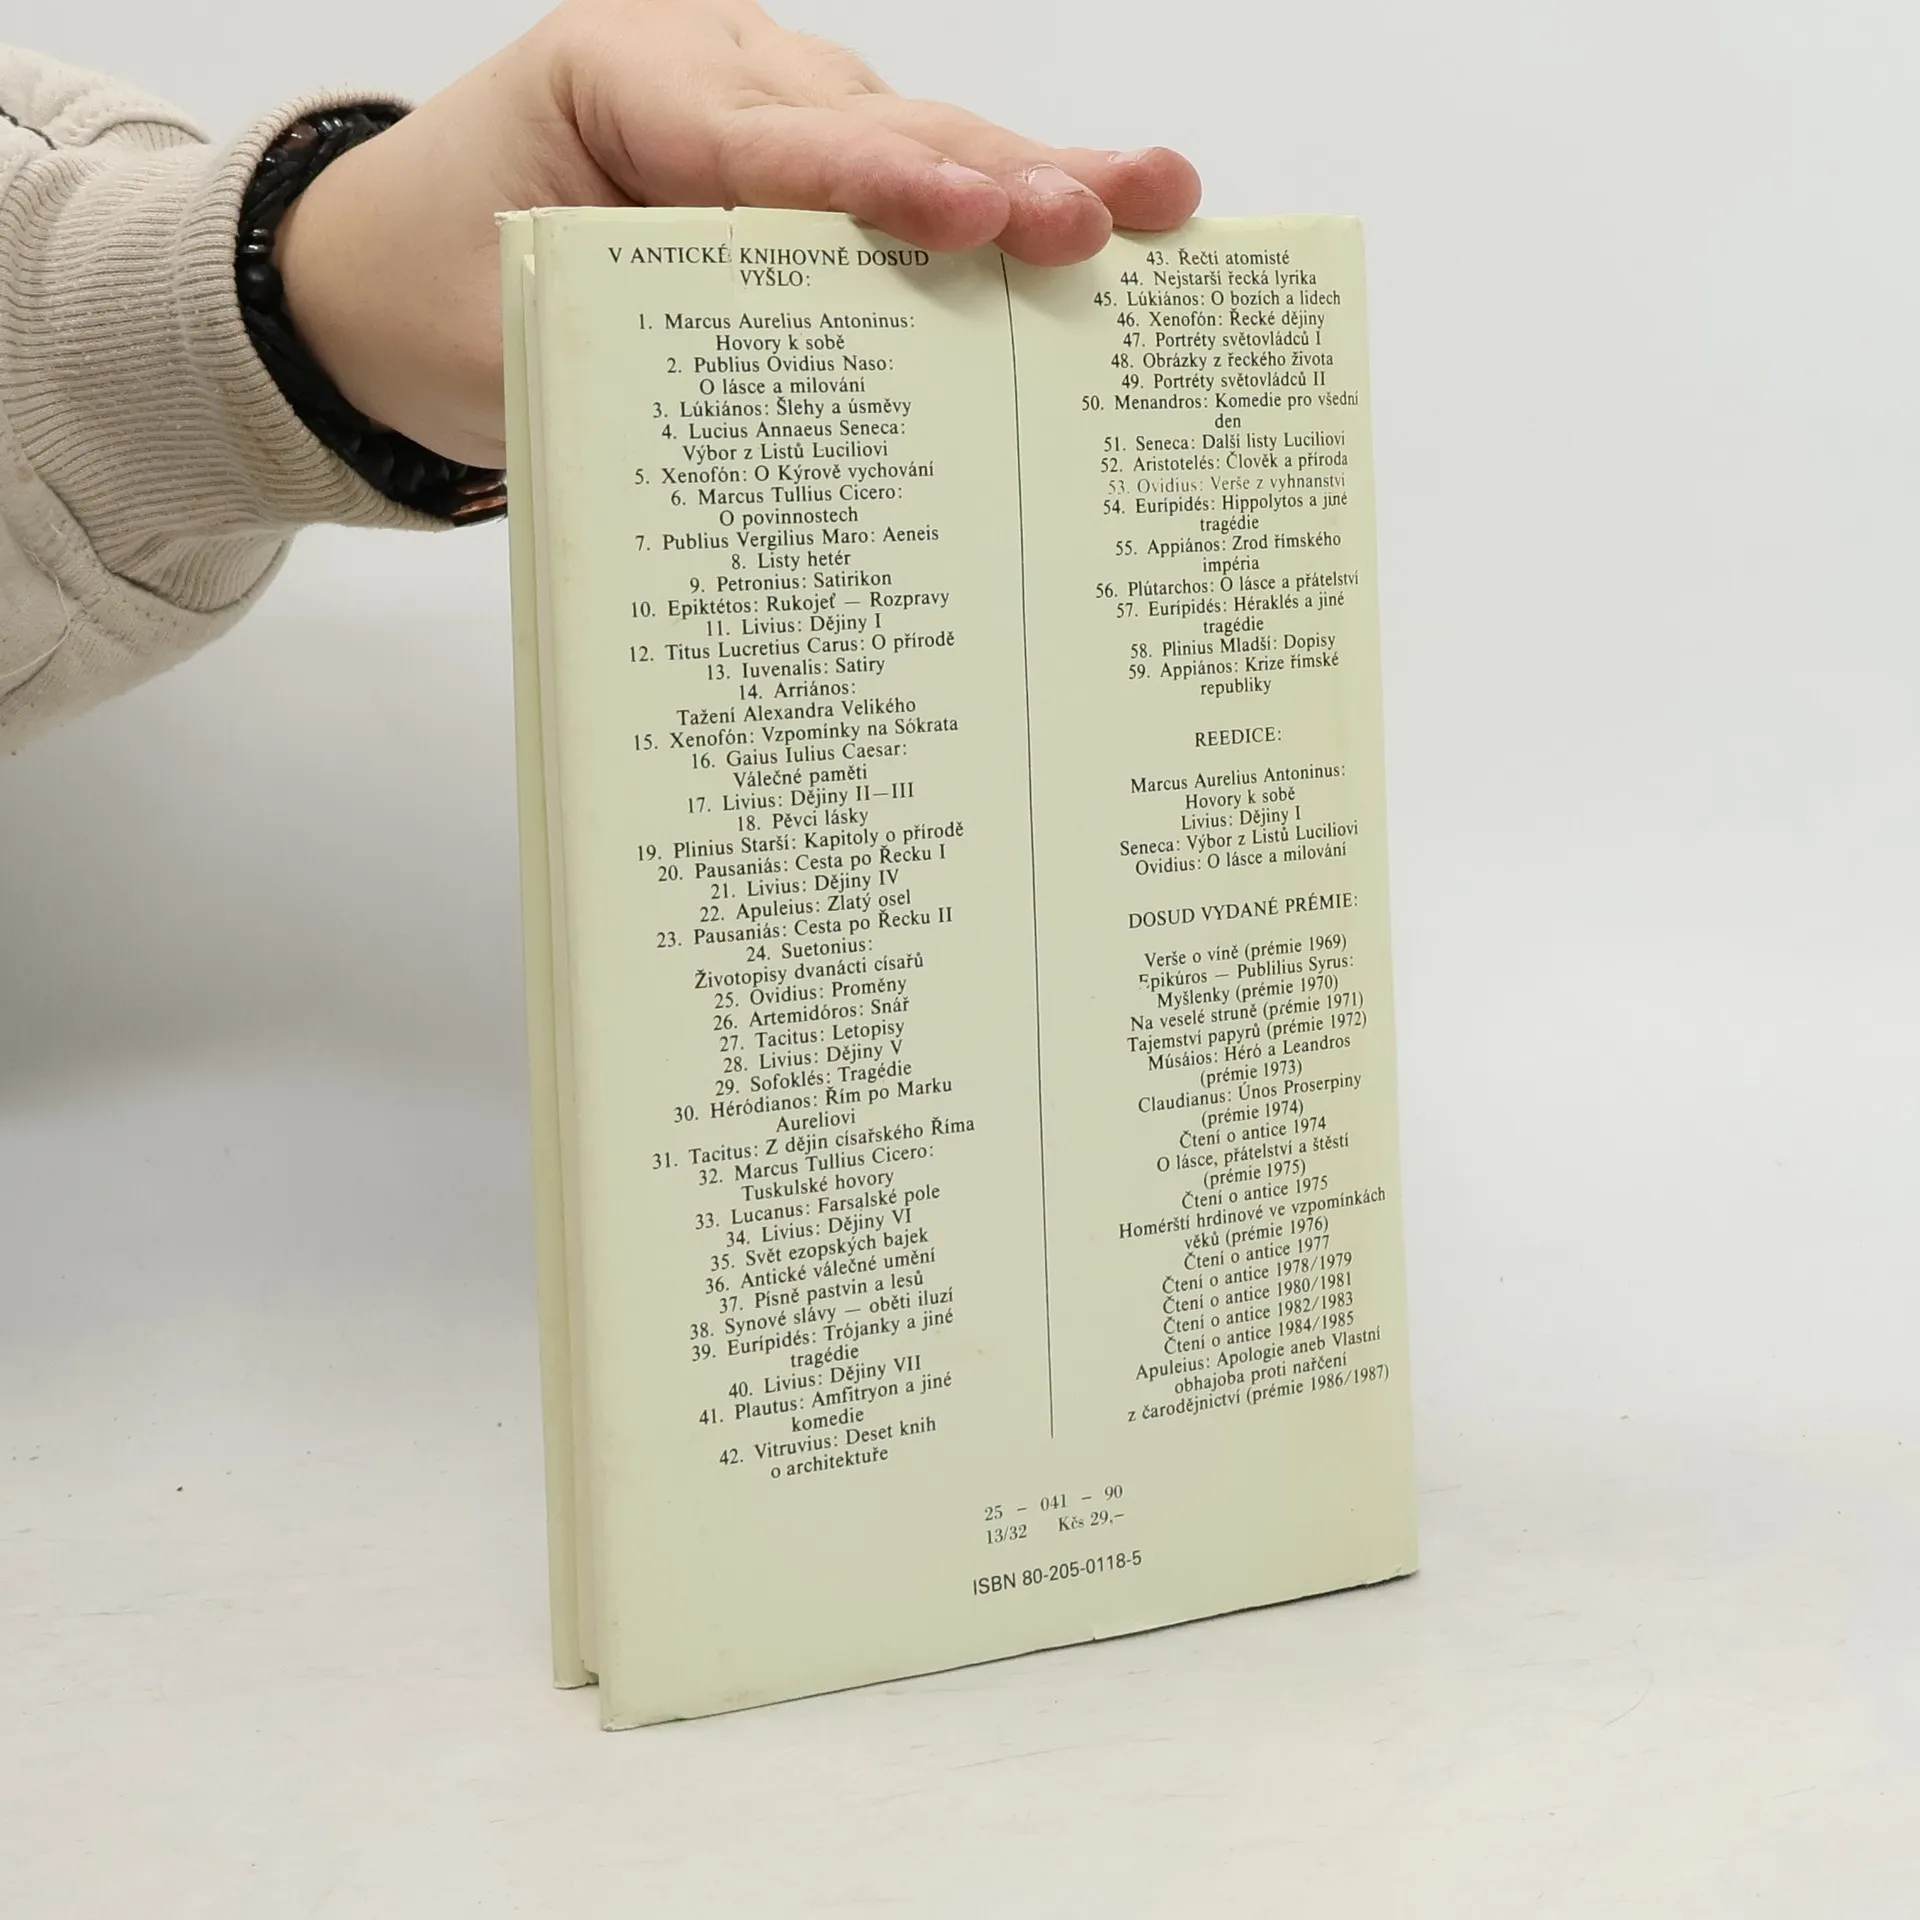 V ANTICKÉ KNIHOVNĚ DOSUD
VYŠLO:
1. Marcus Aurelius Antoninus:
Hovory k sobě
2. Publius Ovidius Naso:
O lásce a milování
3. Lúkiános: Šlehy a úsměvy
4. Lucius Annaeus Seneca:
Výbor z Listů Luciliovi
5. Xenofón: O Kýrově vychování
6. Marcus Tullius Cicero:
O povinnostech
7. Publius Vergilius Maro: Aeneis
8. Listy hetér
9. Petronius: Satirikon
10. Epiktétos: Rukojeť — Rozpravy
11. Livius: Dějiny I
12. Titus Lucretius Carus: O přírodě
13. Iuvenalis: Satiry
14. Arriános:
Tažení Alexandra Velikého
15. Xenofón: Vzpomínky na Sókrata
16. Gaius Iulius Caesar:
Válečné paměti
17. Livius: Dějiny II—III
18. Pěvci lásky
19. Plinius Starší: Kapitoly o přírodě
20. Pausaniás: Cesta po Řecku I
21. Livius: Dějiny IV
22. Apuleius: Zlatý osel
23. Pausaniás: Cesta po Řecku II
24. Suetonius:
Životopisy dvanácti císařů
25. Ovidius: Proměny
26. Artemidóros: Snář
27. Tacitus: Letopisy
28. Livius: Dějiny V
29. Sofoklés: Tragédie
30. Héródianos: Řím po Marku
Aureliovi
31. Tacitus: Z dějin císařského Říma
32. Marcus Tullius Cicero:
Tuskulské hovory
33. Lucanus: Farsalské pole
34. Livius: Dějiny VI
35. Svět ezopských bajek
36. Antické válečné umění
37. Písně pastvin a lesů
38. Synové slávy — oběti iluzí
39. Eurípidés: Trójanky a jiné
tragédie
40. Livius: Dějiny VII
41. Plautus: Amfitryon a jiné
komedie
42. Vitruvius: Deset knih
o architektuře
43. Řečtí atomisté
44. Nejstarší řecká lyrika
45. Lúkiános: O bozích a lidech
46. Xenofón: Řecké dějiny
47. Portréty světovládců I
48. Obrázky z řeckého života
49. Portréty světovládců II
50. Menandros: Komedie pro všední
den
51. Seneca: Další listy Luciliovi
52. Aristotelés: Člověk a příroda
53. Ovidius: Verše z vyhnanství
54. Eurípidés: Hippolytos a jiné
tragédie
55. Appiános: Zrod římského
impéria
56. Plútarchos: O lásce a přátelství
57. Eurípidés: Héraklés a jiné
tragédie
58. Plinius Mladší: Dopisy
59. Appiános: Krize římské
republiky
REEDICE:
Marcus Aurelius Antoninus:
Hovory k sobě
Livius: Dějiny I
Seneca: Výbor z Listů Luciliovi
Ovidius: O lásce a milování
DOSUD VYDANÉ PRÉMIE:
Verše o víně (prémie 1969)
Epikúros — Publilius Syrus:
Myšlenky (prémie 1970)
Na veselé struně (prémie 1971)
Tajemství papyrů (prémie 1972)
Músáios: Héró a Leandros
(prémie 1973)
Claudianus: Únos Proserpiny
(prémie 1974)
Čtení o antice 1974
O lásce, přátelství a štěstí
(prémie 1975)
Čtení o antice 1975
Homérští hrdinové ve vzpomínkách
věků (prémie 1976)
Čtení o antice 1977
Čtení o antice 1978/1979
Čtení o antice 1980/1981
Čtení o antice 1982/1983
Čtení o antice 1984/1985
Apuleius: Apologie aneb Vlastní
obhajoba proti nařčení
z čarodějnictví (prémie 1986/1987)
25 — 041 — 90
13/32 Kčs 29,—
ISBN 80-205-0118-5